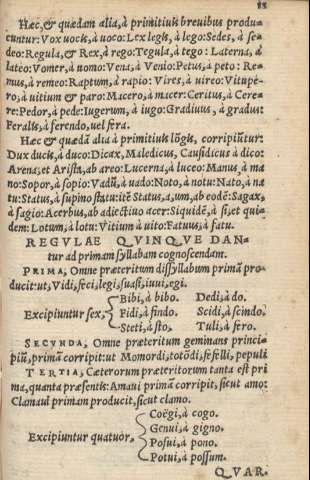 88
Hæc, & quædam alia, à primitiuis breuibus produ-
cuntur: Vox uocis, à uoco: Lex legis, à lego: Sedes, à se-
deo: Regula, & Rex, à rego: Tegula, à tego: Laterna, à
lateo: Vomer, à uomo: Vena, à Venio: Petus, à peto: Re-
mus, à remeo: Raptum, à rapio: Vires, à uireo: Vitupe-
ro, à uitium & paro: Macero, à macer: Ceritus, à Cere-
re: Pedor, à pede: Iugerum, à iugo: Gradiuus, à gradus:
Feralis, à ferendo, uel fera.
Hæc & quædã alia à primitiuis lõgis, corripiũtur:
Dux ducis, à duco: Dicax, Maledicus, Causidicus à dico:
Arena, et Arista, ab areo: Lucerna, à luceo: Manus, à ma
no: Sopor, à sopio: Vadũ, à uado: Noto, à notu: Nato, à na
tu: Status, à supino statu: itẽ Status, a, um, ab eodẽ: Sagax,
à sagio: Acerbus, ab adiectiuo acer: Siquidẽ, à si, et qui-
dem: Lotum, à lotu: Vitium à uito: Fatuus, à fatu.
REGVLAE QVINQVE DAN-
tur ad primam syllabam cognoscendam.
PRIMA, Omne præteritum dissyllabum primã pro-
ducit: ut, Vidi, feci, legi, suasi, iuui, egi.
Excipiuntur sex,
Bibi, à bibo. Dedi, à do.
Fidi, à findo. Scidi, à scindo.
Steti, à sto. Tuli, à fero.
SECVNDA, Omne præteritum geminans princi-
piũ, primã corripit: ut Momordi, totõdi, fefelli, pepuli
TERTIA, Cæterorum præteritorum tanta est pri
ma, quanta præsentis: Amaui primãm corripit, sicut amo:
Clamaui primam producit, sicut clamo.
Excipiuntur quatuor,
Coëgi, à cogo.
Genui, à gigno.
Posui, à pono.
Potui, à possum.
QVAR-